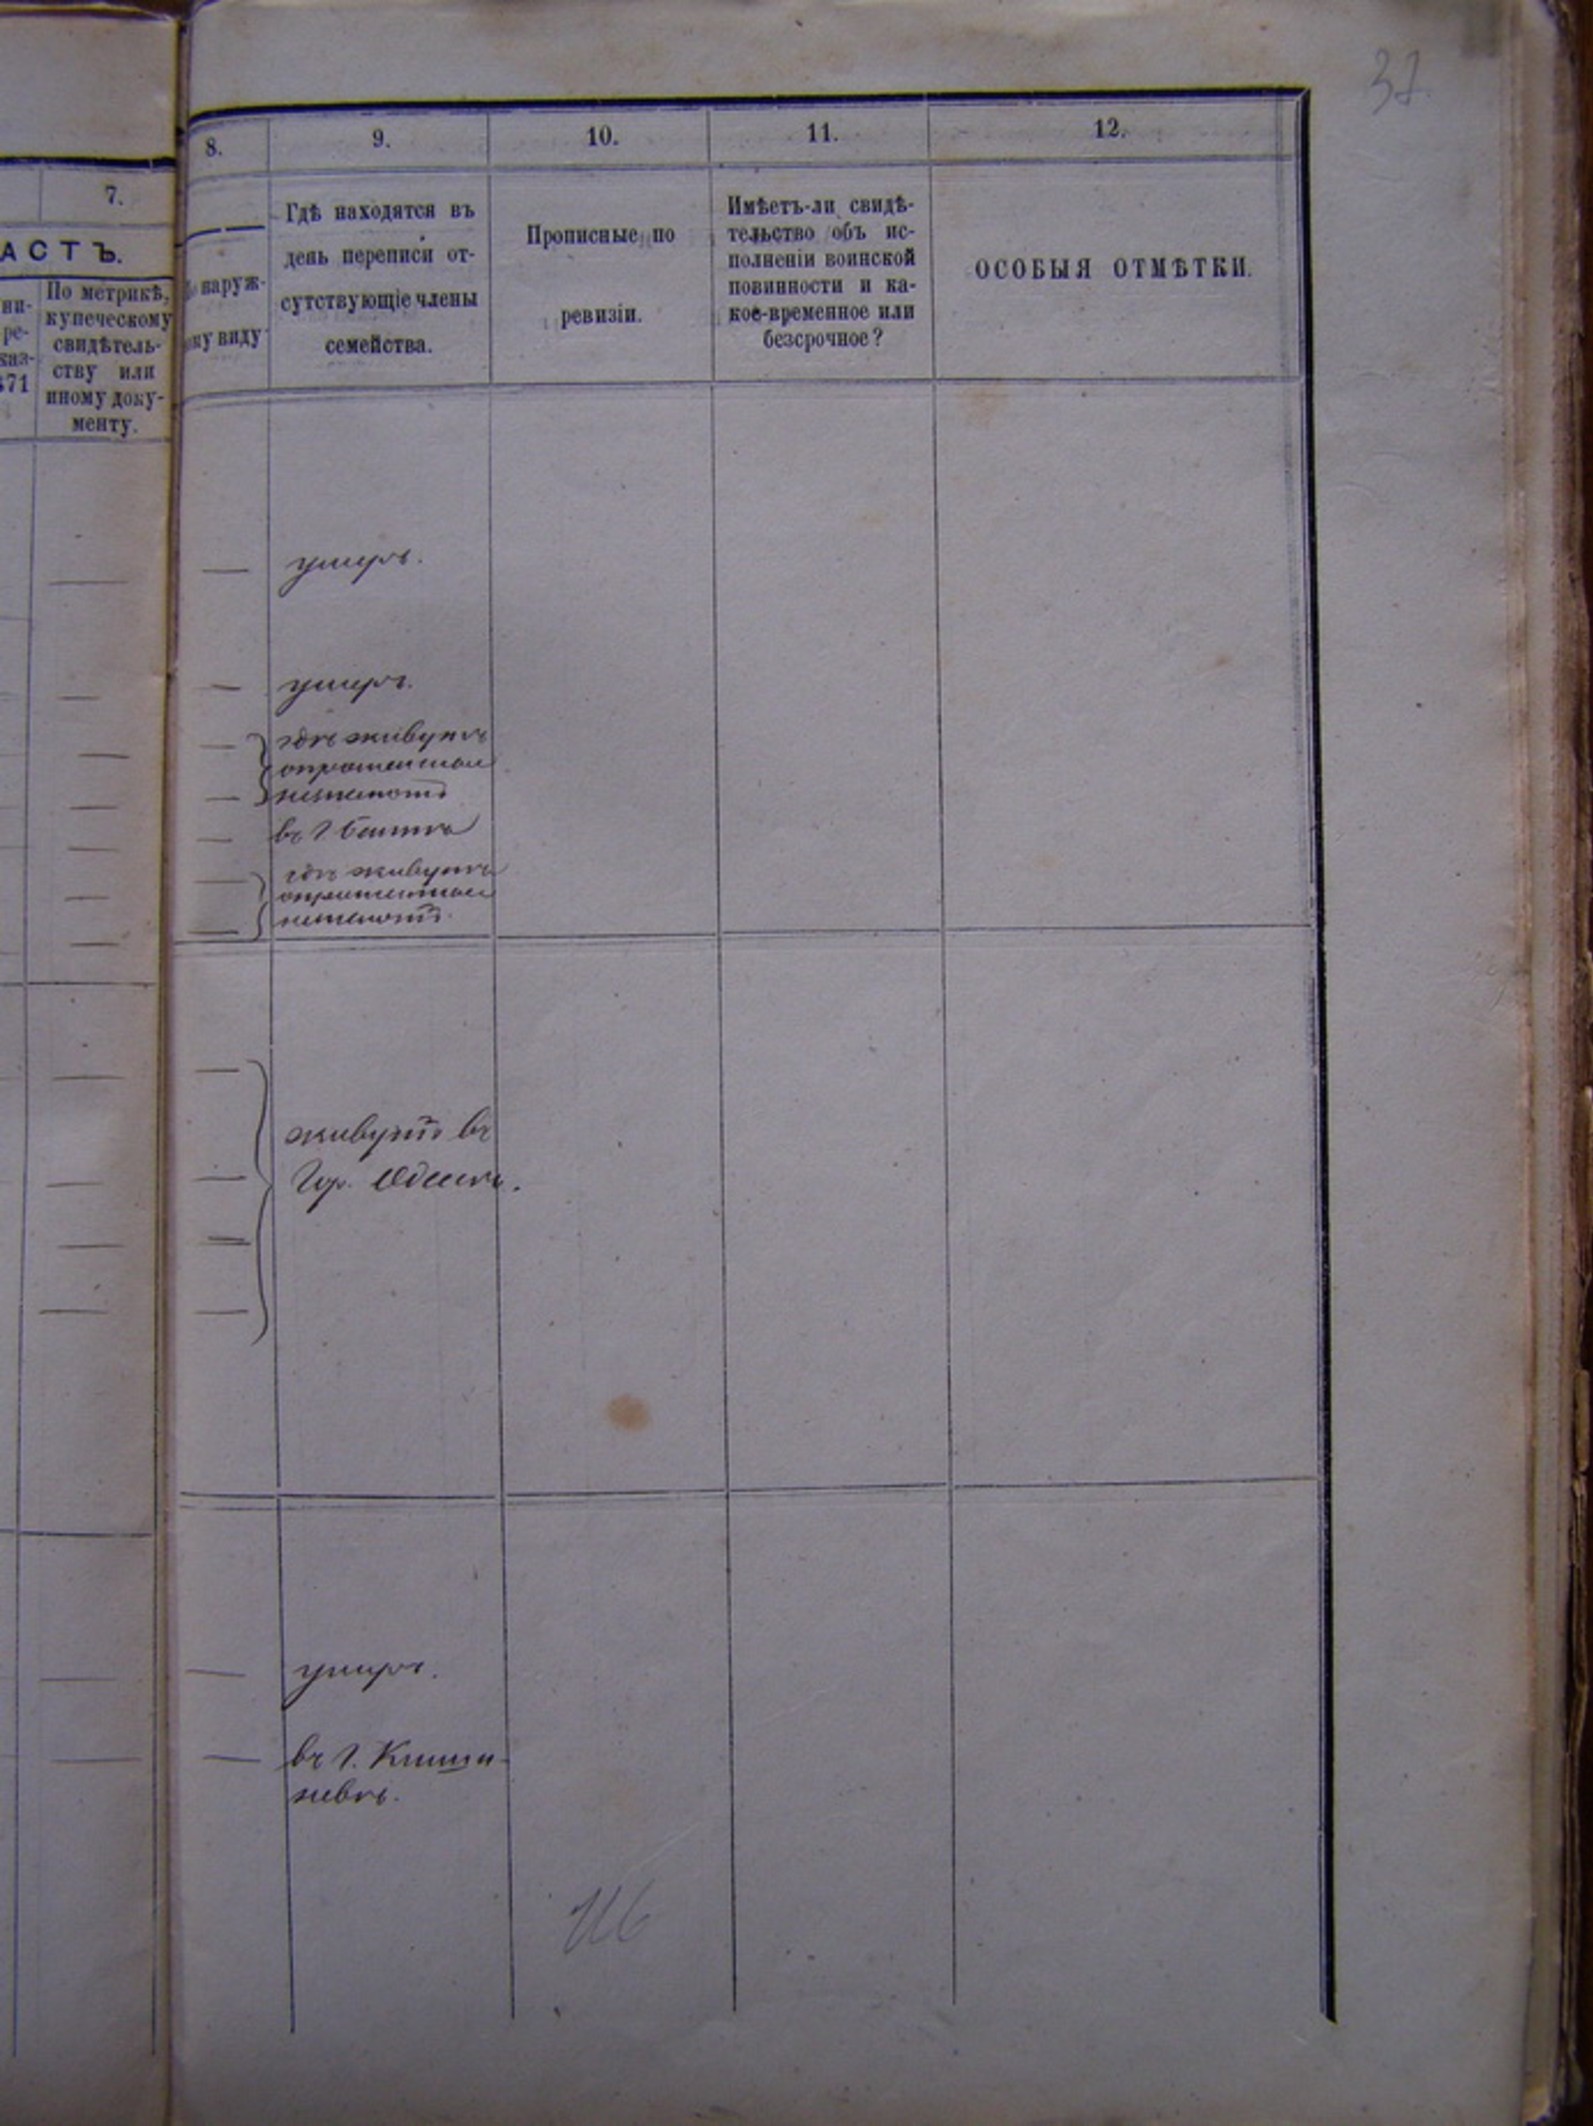 37.
7.
АСТЪ.
ни-
ре-
каз-
871
По метрикѣ,
купеческому
свидѣтель-
ству или
иному доку-
менту.
8.
наруж-
ному виду
9.
Гдѣ находятся въ
день переписи от-
сутствующіе члены
семейства.
10.
Прописные по
ревизіи.
11.
Имѣетъ-ли свидѣ-
тельство объ ис-
полненіи воинской
повинности и ка-
кое-временное или
безсрочное?
12.
ОСОБЫЯ ОТМѢТКИ.
— — умеръ.
— — умеръ.
— — гдѣ живутъ
опрошенные
— — незнаютъ
— — въ г.
— — гдѣ живутъ
— опрошенные
— — незнаютъ.
— —
живутъ въ
— — Гор. Одессѣ.
— —
— —
— — умеръ.
— — въ г. Киши-
невѣ.